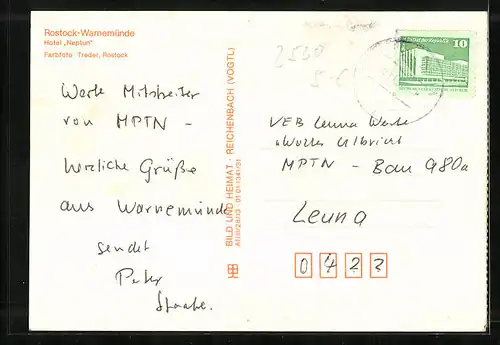 Rostock-Warnemünde
Hotel „Neptun"
Farbfoto: Treder, Rostock
Werte Mitstreiter
von MPTN -
herzliche Grüße
aus Warnemünde
sendet
Peter
BILD UND HEIMAT · REICHENBACH (VOGTL)
2530
10
VEB Leuna Werke
„Walter Ulbricht
MPTN - Bau 980a
Leuna
0 4 2 2